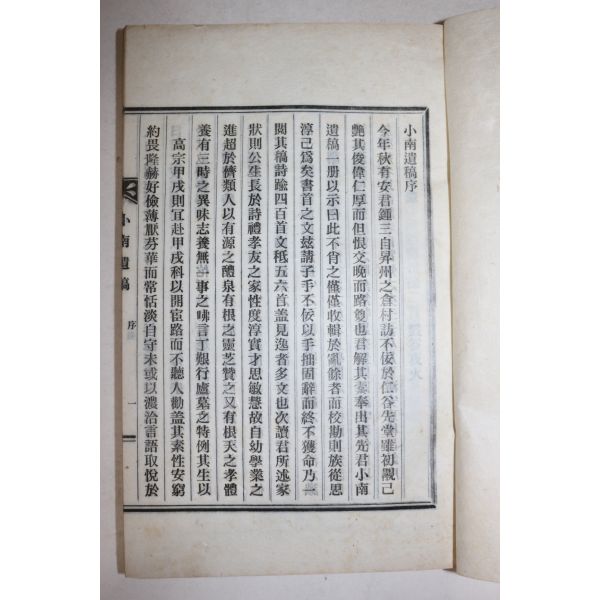 小南遺稿序
今年秋有安君鍾三自昇州之倉村訪不佞於仁谷先堂雖初覿己
艶其俊偉仁厚而但恨交晚而路夐也君解其橐奉出其先君小南
遺稿一册以示曰此不肖之僅僅收輯於亂餘者而校勘則族從思
淳己爲矣書首之文玆請子手不佞以手拙固辭而終不獲命乃一
閱其稿詩踰四百首文秪五六首盖見逸者多文也次讀君所述家
狀則公生長於詩禮孝友之家性度淳實才思敏慧故自幼學業之
進超於儕類人以有源之醴泉有根之靈芝贊之又有根天之孝體
養有三時之異味志養無一事之咈言丁艱行廬墓之特例其生以
高宗甲戌則冝赴甲戌科以開宦路而不聽人勸盖其素性安窮
約畏隆赫好儉薄厭芬華而常恬淡自守未或以濃洽言語取悅於
小南遺稿 序 一